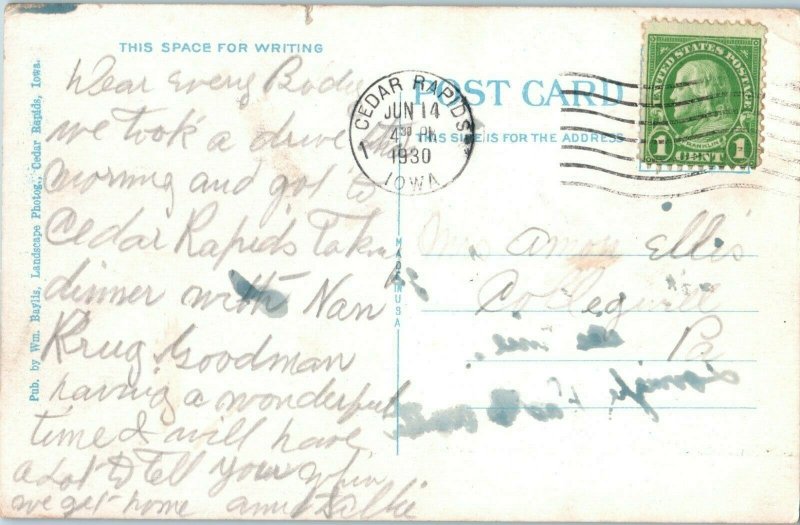 THIS SPACE FOR WRITING
Dear Every Body
we took a drive this
morning and got to
Cedar Rapids Takin
dinner with Nan
Krug Goodman
having a wonderful
time & will have
a Lot to Tell you when
we get home
Pub. by Wm. Baylis, Landscape Photog., Cedar Rapids, Iowa.
MADE IN USA
POST CARD
THIS SIDE IS FOR THE ADDRESS
CEDAR RAPIDS
JUN 14
4 30 PM
1930
IOWA
1
UNITED STATES POSTAGE
FRANKLIN
1 CENT 1
Mrs Amon Ellis
Collegeville
Pa